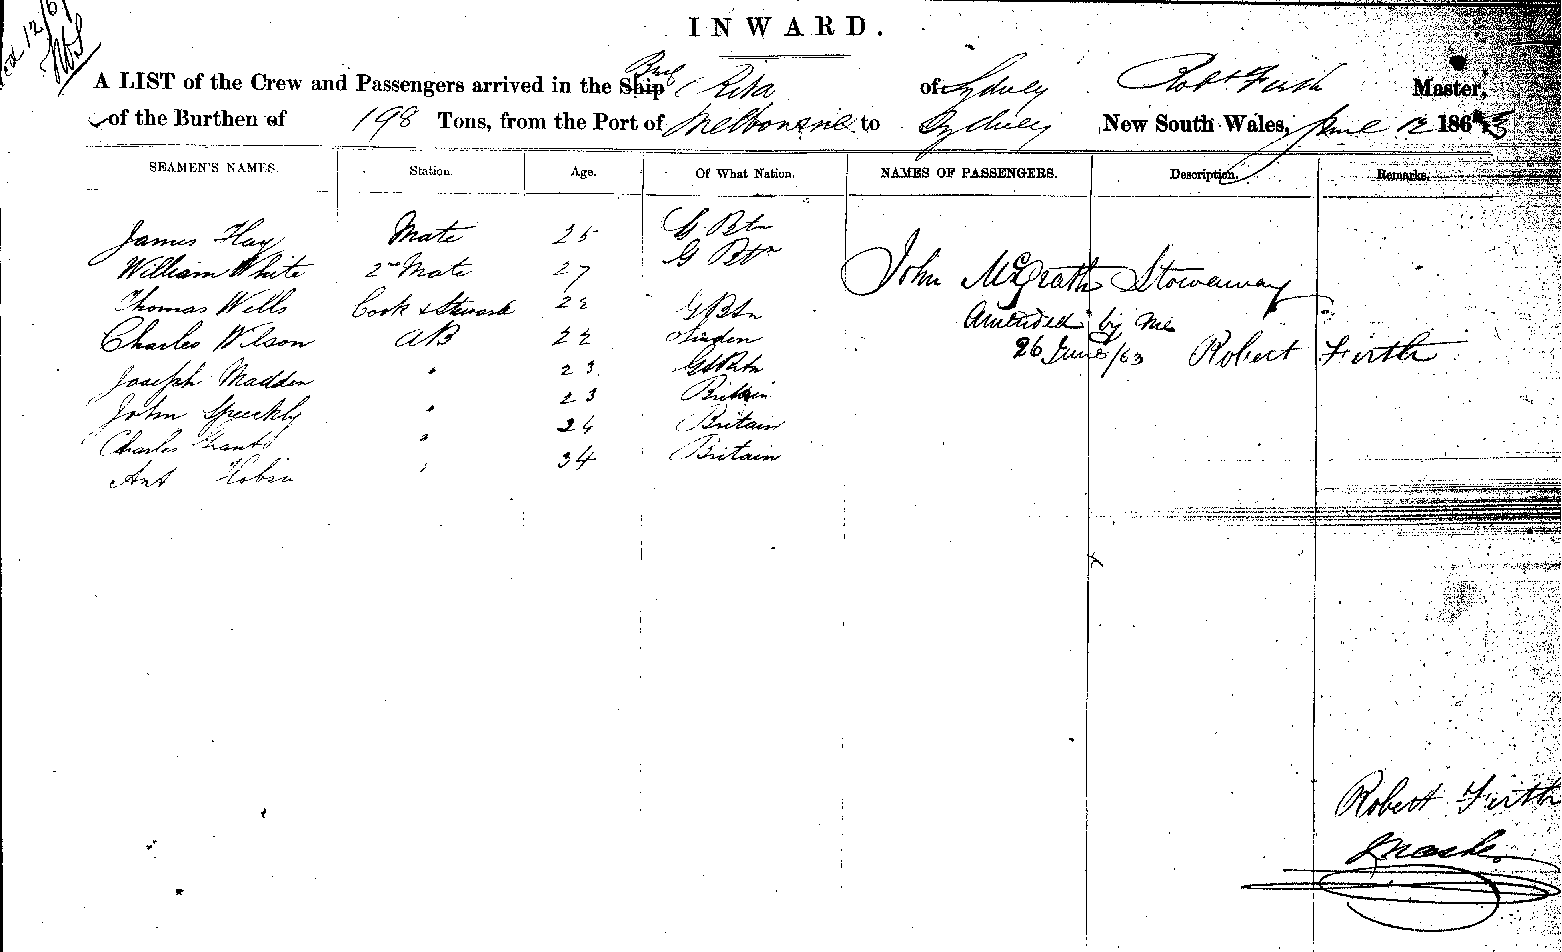 INWARD.
A LIST of the Crew and Passengers arrived in the Ship Brig Rita of Sydney Robt Firth Master,
of the Burthen of 198 Tons, from the Port of Melbourne to Sydney New South Wales, June 12 1863
SEAMEN'S NAMES. Station. Age. Of What Nation. NAMES OF PASSENGERS. Description. Remarks.
James Hay Mate 25 G Btn
William White 2nd Mate 27 G Btn
John McGrath Stowaway
Thomas Wells Cook & Steward 22 G Btn
Amended by me
Charles Wilson AB 22
26 June/63 Robert Firth
Joseph Madden " 23 Gt Btn
John Speckly " 23 Britain
Charles Grant " 24 Britain
Ant Hobin " 34 Britain
Robert Firth